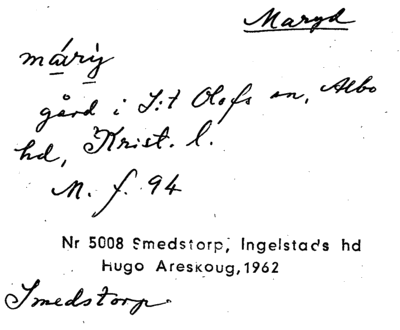 Maryd
máry̱
gård i S:t Olofs sn, Albo
hd, Krist. l.
M. f. 94
Nr 5008 Smedstorp, Ingelstads hd
Hugo Areskoug, 1962
Smedstorp